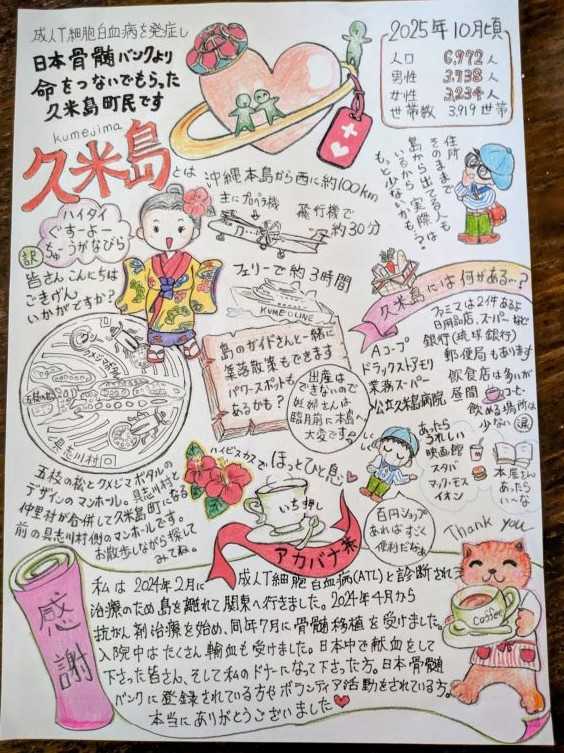 成人T細胞白血病を発症し
日本骨髄バンクより
命をつないでもらった
久米島町民です
2025年10月頃
人口 6,972人
男性 3,738人
女性 3,234人
世帯数 3,919世帯
kumejima
久米島
とは 沖縄本島から西に約100km
主にプロペラ機
飛行機で
約30分
住所
そのままで
島から出てる人も
いるから実際は
もっと少ないかも?
ハイタイ
ぐすーよー
ちゅーうがなびら
訳
皆さんこんにちは
ごきげん
いかがですか?
フェリーで約3時間
KUMELINE
久米島には何がある…?
ファミマは2件あるよ
日用品店、スーパーなど
銀行(琉球銀行)
郵便局もあります
Aコープ
ドラックストアモリ
業務スーパー
公立久米島病院
飲食店は多いが
昼間コーヒー
飲める場所は
少ない 涙
島のガイドさんと一緒に
集落散策もできます
パワースポットも
あるかも?
出産は
できないので
妊婦さんは
臨月前に本島へ
大変です
クメジマボタル
五枝の松
具志川村
五枝の松とクメジマボタルの
デザインのマンホール。具志川村と
仲里村が合併して久米島町になる
前の具志川村側のマンホールです。
お散歩しながら探して
みてね。
ハイビスカスで
ほっとひと息
いち押し
アカバナ茶
あったら
うれしい
映画館
スタバ
マック・モス
イオン
本屋さん
あったら
い〜な
百円ショップ
あればすごく
便利だなぁ
Thank you
Coffee
感謝
私は2024年2月に 成人T細胞白血病(ATL)と診断され
治療のため島を離れて関東へ行きました。2024年4月から
抗がん剤治療を始め、同年7月に骨髄移植を受けました。
入院中はたくさん輸血も受けました。日本中で献血をして
下さった皆さん、そして私のドナーになって下さった方。日本骨髄
バンクに登録されている方やボランティア活動をされている方。
本当にありがとうございました